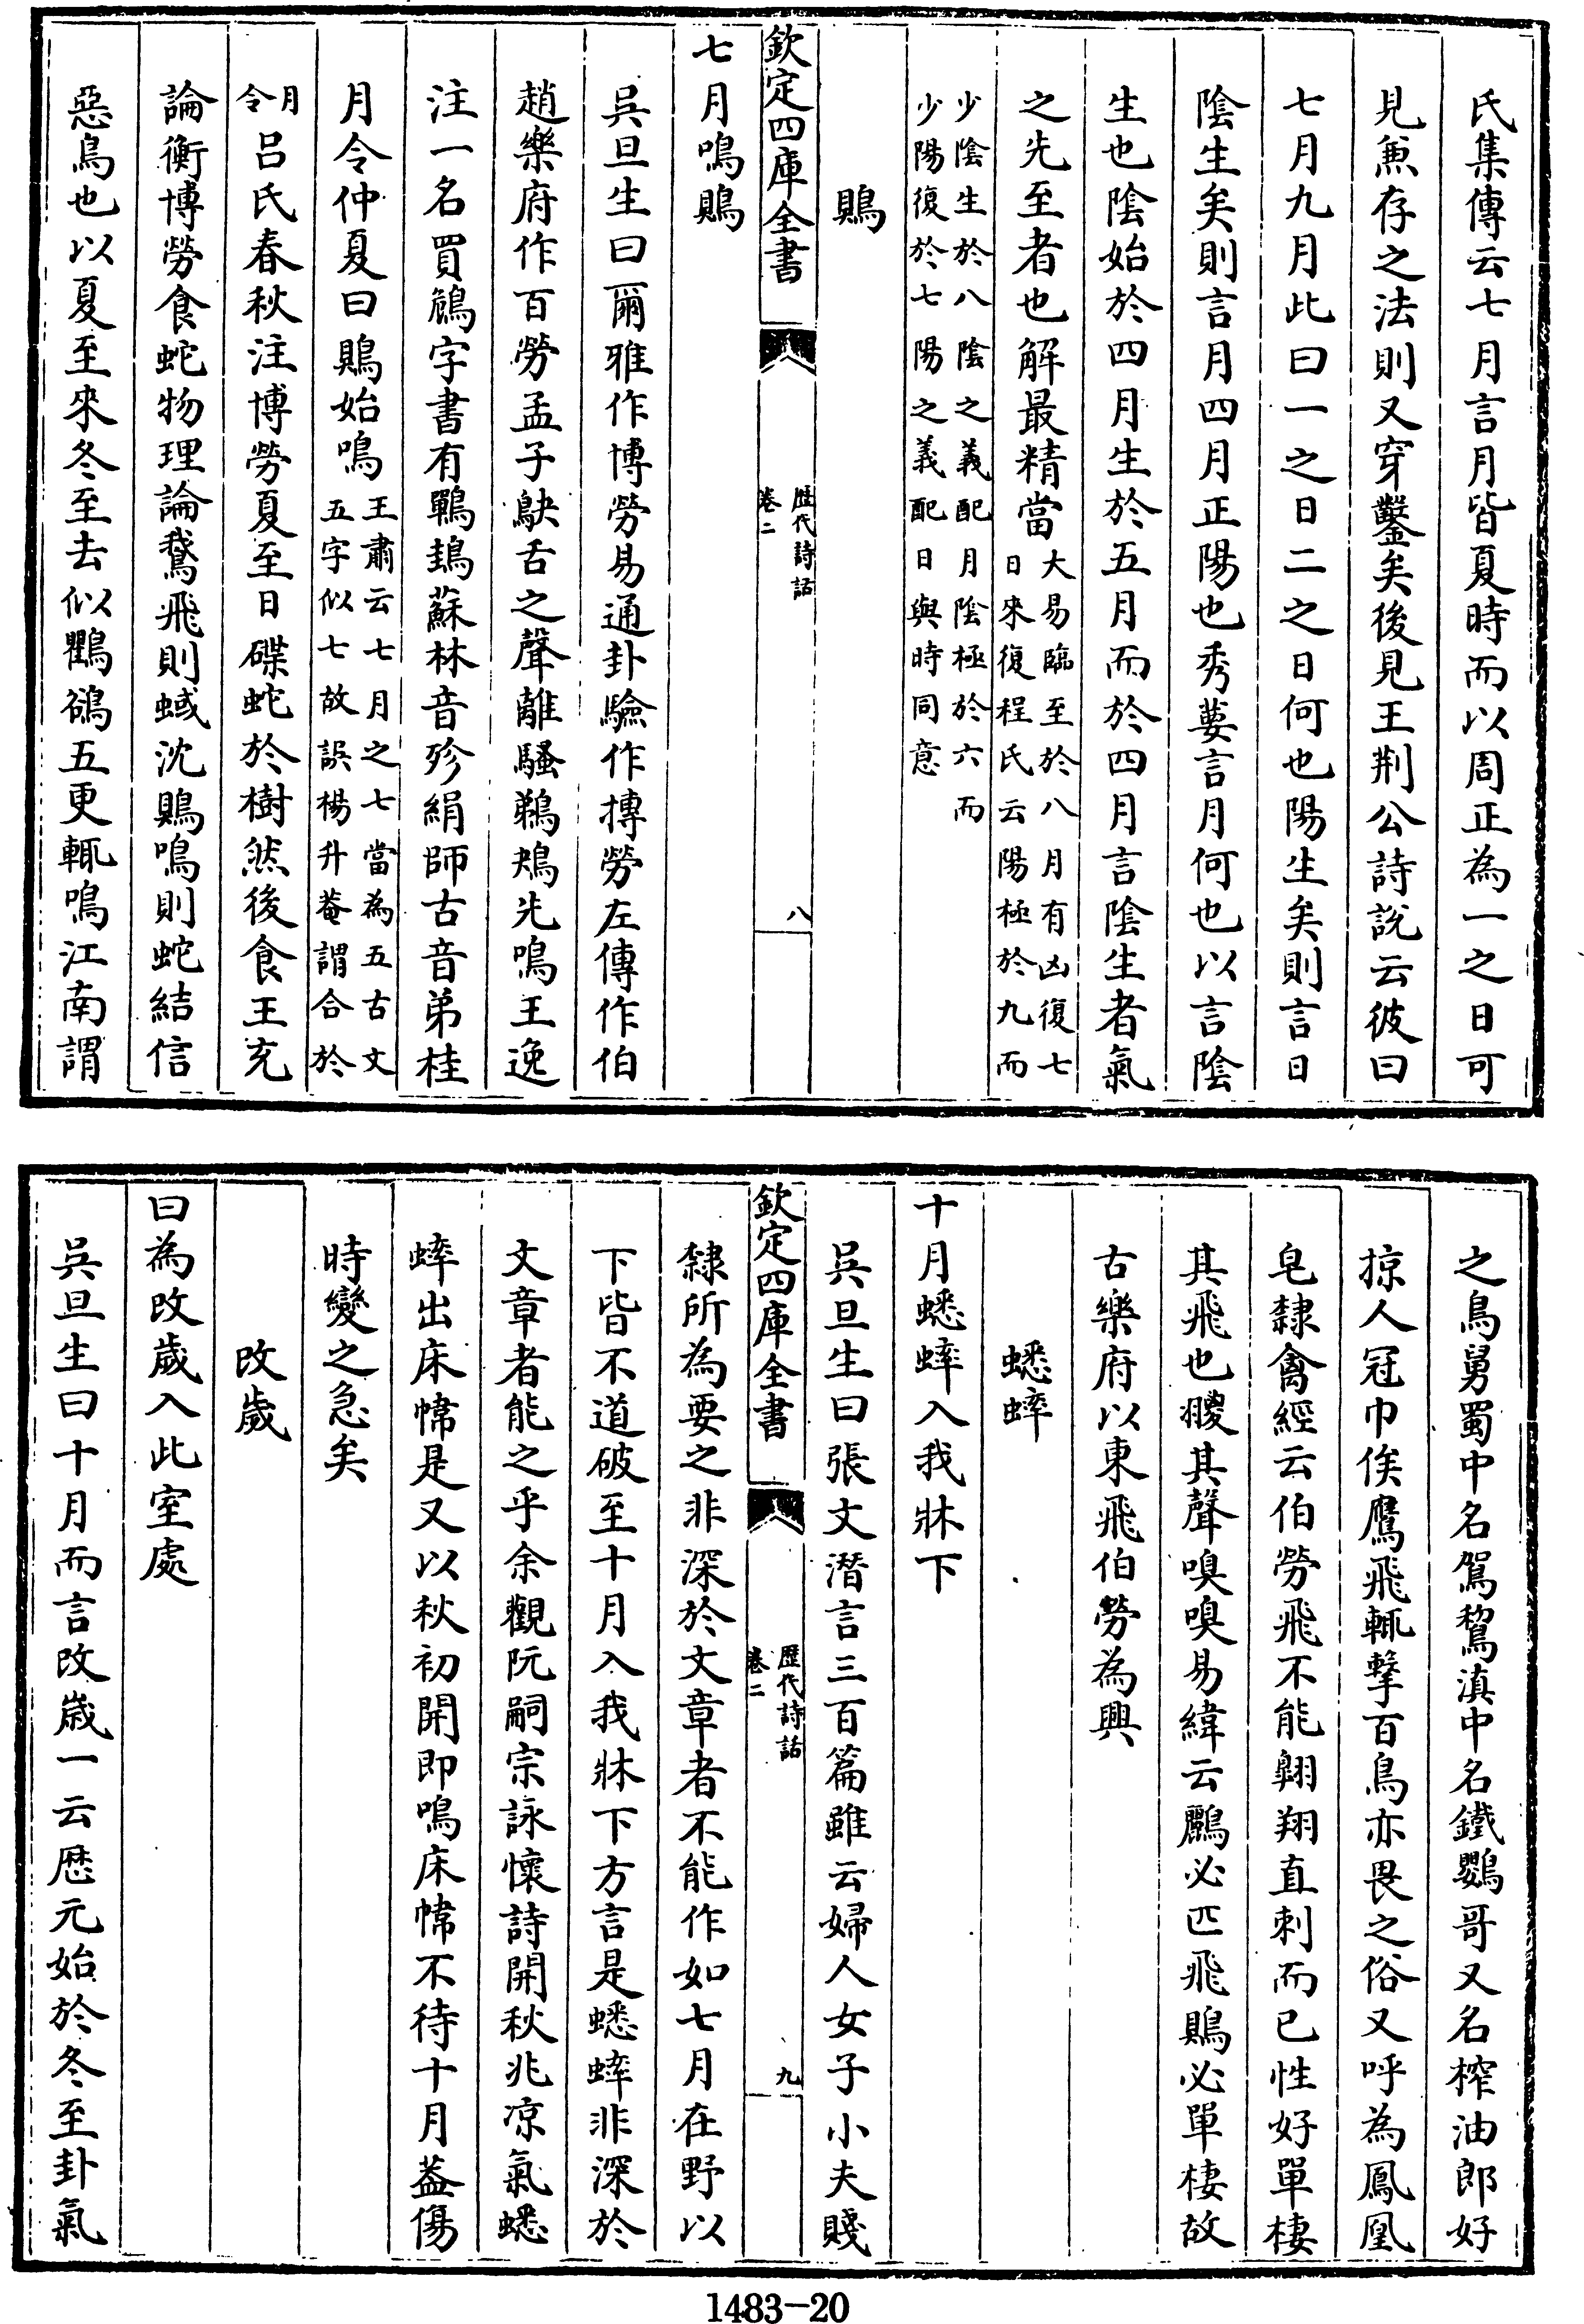 氏集傳云七月言月皆夏時而以周正為一之日可
見兼存之法則又穿鑿矣後見王荆公詩說云彼曰
七月九月此曰一之日二之日何也陽生矣則言日
陰生矣則言月四月正陽也秀葽言月何也以言陰
生也陰始於四月生於五月而於四月言陰生者氣
之先至者也解最精當大易臨至於八月有凶復七
日來復程氏云陽極於九而
少陰生於八陰之義配月陰極於六而
少陽復於七陽之義配日與時同意
鵙
欽定四庫全書
歴代詩話
卷二
八
七月鳴鵙
吳旦生曰爾雅作博勞易通卦驗作摶勞左傳作伯
趙樂府作百勞孟子鴃舌之聲離騷鵜鴂先鳴王逸
注一名買鵤字書有鷤䳏蘇林音殄絹師古音弟桂
月令仲夏曰鵙始鳴王肅云七月之七當為五古文
五字似七故誤楊升菴謂合於
月
令呂氏春秋注博勞夏至日磔蛇於樹然後食王充
論衡博勞食蛇物理論鵞飛則蜮沈鵙鳴則蛇結信
惡鳥也以夏至來冬至去似鸜鵒五更輒鳴江南謂
之鳥舅蜀中名鴐鵹滇中名鐵鸚哥又名榨油郎好
掠人冠巾俟鷹飛輒擊百鳥亦畏之俗又呼為鳳凰
皂隸禽經云伯勞飛不能翺翔直刺而已性好單棲
其飛也翪其聲嗅嗅易緯云鸝必匹飛鵙必單棲故
古樂府以東飛伯勞為興
蟋蟀
十月蟋蟀入我牀下
吳旦生曰張文潛言三百篇雖云婦人女子小夫賤
欽定四庫全書
歴代詩話
卷二
九
隸所為要之非深於文章者不能作如七月在野以
下皆不道破至十月入我牀下方言是蟋蟀非深於
文章者能之乎余觀阮嗣宗詠懷詩開秋兆凉氣蟋
蟀出床幃是又以秋初開即鳴床幃不待十月葢傷
時變之急矣
改歲
曰為改歲入此室處
吳旦生曰十月而言改歲一云歴元始於冬至卦氣
1483-20